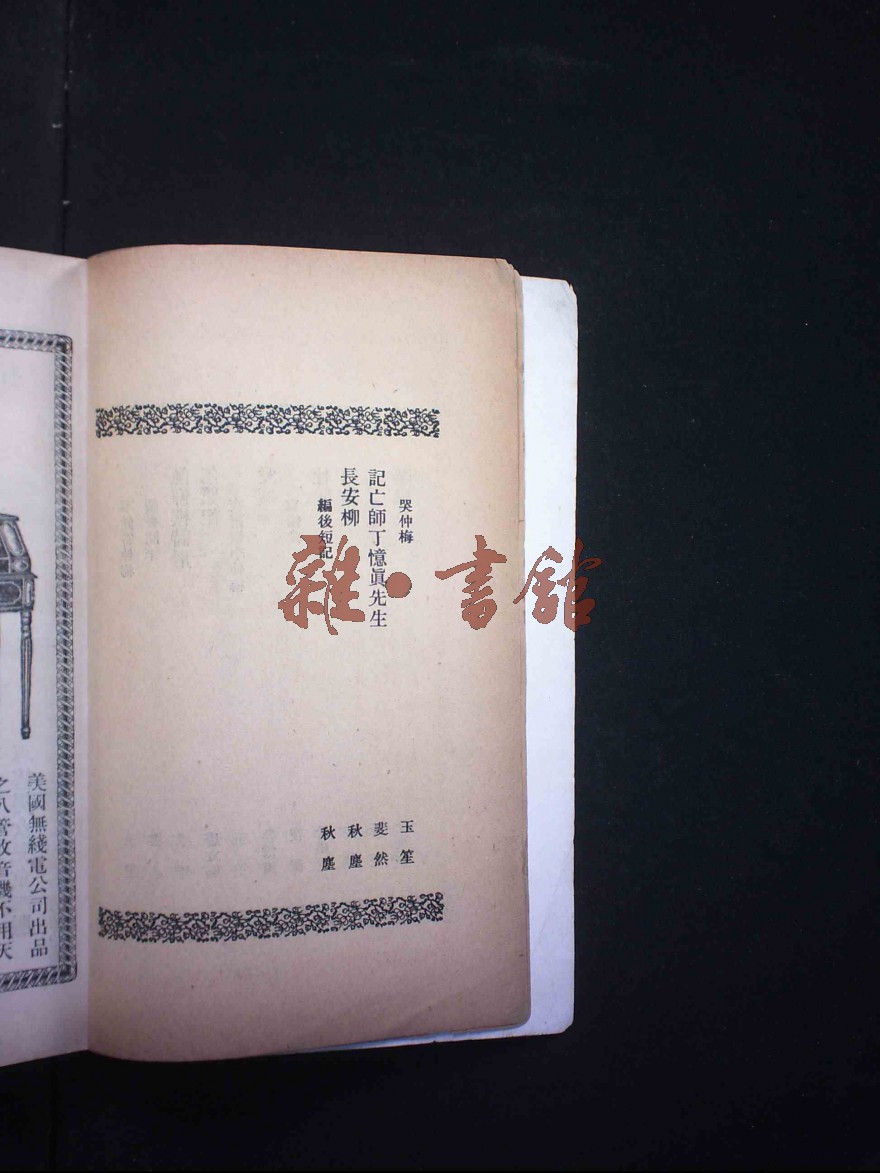 哭仲梅 玉笙
記亡師丁憶眞先生 斐然
長安柳 秋塵
編後短記 秋塵
雜·書館
美國無綫電公司出品
之八管收音機不用天